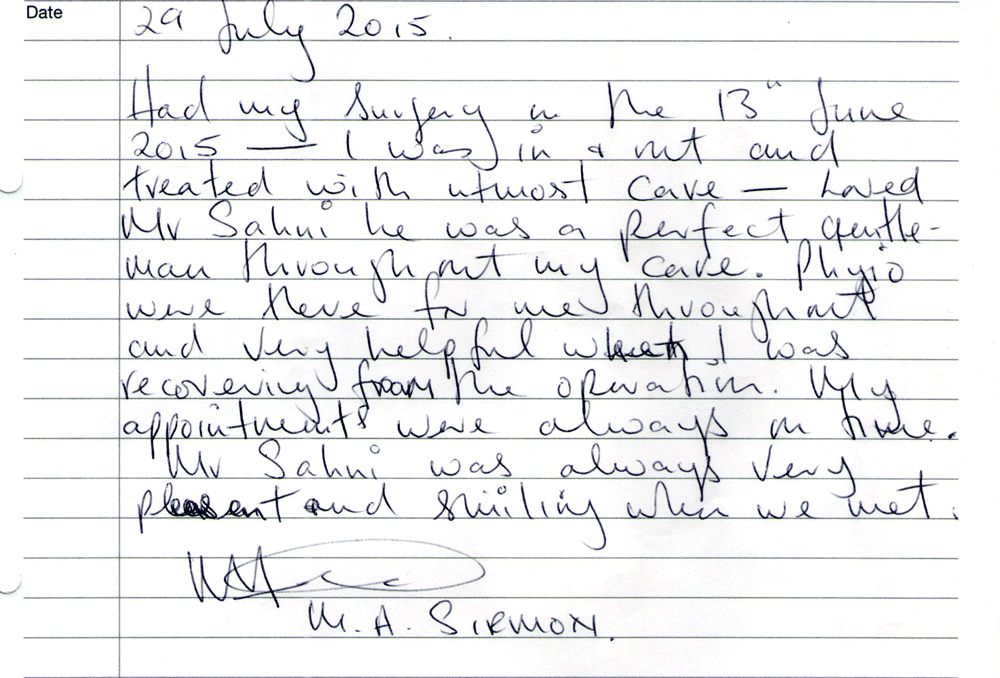 Date 29 July 2015.
Had my surgery on the 13th June
2015 — I was in & out and
treated with utmost care — Loved
Mr Sahni he was a perfect gentle-
man throughout my care. Physio
were there for me throughout
and very helpful when I was
recovering from the operation. My
appointments were always on time.
Mr Sahni was always very
pleasent and smiling when we met.
M. A. SIRMON.